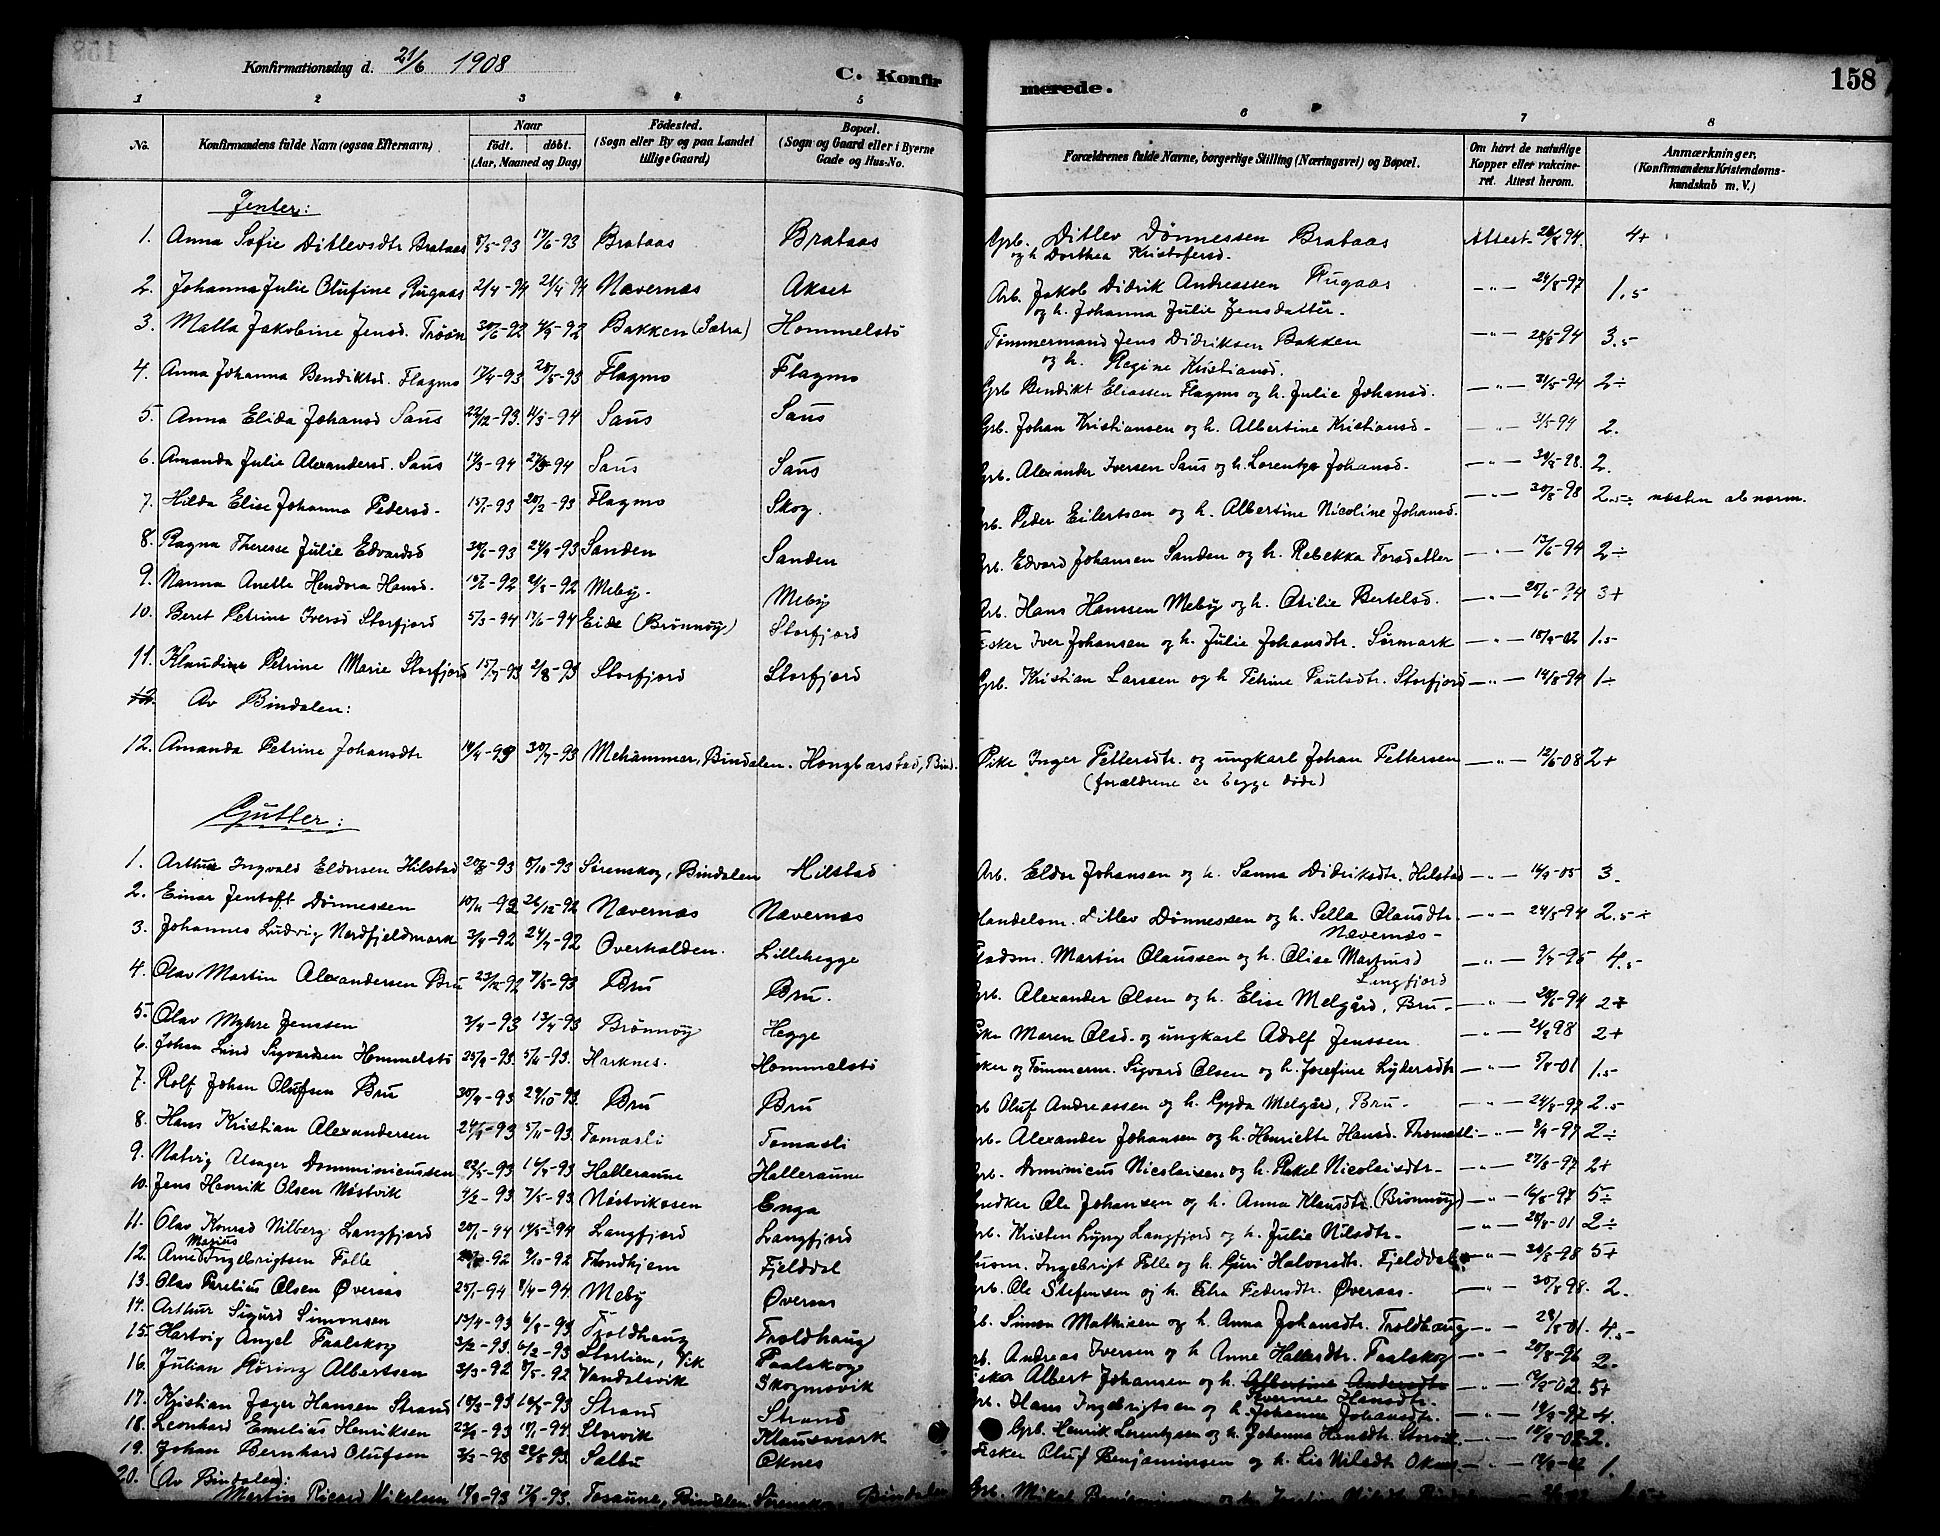 Konfirmationsdag d. 21/6 1908
C. Konfirmerede.
158
1 2 3 4 5 6 7 8
No. Konfirmandens fulde Navn (ogsaa Efternavn) Naar født. døbt. (Aar, Maaned og Dag) Födested. (Sogn eller By og paa Landet tillige Gaard) Bopæl. (Sogn og Gaard eller i Byerne Gade og Hus-No. Forældrenes fulde Navne, borgerlige Stilling (Næringsvei) og Bopæl. Om havt de naturlige Kopper eller vakcineret. Attest herom. Anmærkninger. (Konfirmandens Kristendomskundskab m. V.)
Jenter:
1. Anna Sofie Ditlevsdtr Brataas 8/5-93 17/6-93 Brataas Brataas Grb. Ditlev Dønnessen Brataas Attest - 94. 4+
og h Dorthea Kristofersd.
2. Johanna Julie Olufine Rugaas 2/4-94 21/4 94 Nævernæs Akset Arb. Jakob Didrik Andreassen Rugaas -"- 24/8-97 1.5
og h. Johanna Julie Jensdatter.
3. Malla Jakobine Jensd. 30/6-92 4/9-92 Bakken (Sætra) Hommelstø Tømmermand Jens Didriksen Bakken -"- 28/8-94 3.5
og h. Regine Kristiansd.
4. Anna Johanna Bendiktsd. Flagmo 17/4-93 28/5-93 Flagmo Flagmo Grb Bendikt Eliassen Flagmo og h. Julie Johansd. -"- 31/5-94 2÷
5. Anna Elida Johansd Saus 22/12-93. 11/3-94 Saus Saus Grb. Johan Kristiansen og h. Albertine Kristiansd - -"- 31/5-94 2.
6. Amanda Julie Alexandersd. Saus 17/3-94 -94 Saus Saus Grb. Alexander Iversen Saus og h. Lorentze Johansd. -"- 98. 2.
7. Hilda Elise Johanna Pedersd. 15/1-93 20/2-93 Flagmo Skog. Arb. Peder Eilertsen og h. Albertine Nicoline Johansd. -"- 30/8-98 2.5÷ næsten abnorm.
8. Ragna Therese Julie Edvardsd 30/6-93 24/9-93 Sanden Sanden Arb. Edvard Johansen Sanden og h. Rebekka Torsdatter -"- 13/6-94 2÷
9. Nanna Anette Hendora Hansd. -92 21/8-92 Meby. Meby Arb. Hans Hanssen Meby og h. Otilie Bertelsd. -"- 20/6-94 3+
10. Beret Petrine Iversd Storfjord 5/3-94 17/6-94 Eide (Brønnøy) Storfjord Fisker Iver Johansen og h. Julie Johansdtr. Sørmark -"- 15/9-02 1.5
11. Klaudine Petrine Marie Storfjord 15/7-93 2/8-93 Storfjord Storfjord Grb. Kristian Larssen og h Petrine Paulsdtr. Storfjord -"- 14/8-94 1÷
12. Av Bindalen:
12. Amanda Petrine Johansdtr 14/4-93 30/7-93 Mehammer, Bindalen. Hongbarstad, Bind. Pike Inger Pettersdtr. og ungkarl Johan Pettersen -"- 12/6-08 2+
(forældrene er begge døde)
Gutter:
1. Arthur Ingvald Eldorsen Hilstad 20/8-93 8/10-93 Sørenskog, Bindalen Hilstad Arb. Eldor Johansen og h. Sanna Didriksdtr. Hilstad -"- 14/9-05 3.
2. Einar Jentoft Dønnessen 10/11-92 26/12-92 Nævernæs Nævernæs Handelsm. Ditlev Dønnessen og h. Sella Olausdtr. -"- 24/5-94 2.5÷
Nævernæs-
3. Johannes Ludvig Nordfjeldmark 3/7-92 24/7-92 Overhalden. Lillehegge Gaadsm. Martin Olaussen og h. Olise Martinusd -"- 9/7-95 4.5
Langfjord
4. Olav Martin Alexandersen Bru 23/12-92 7/5-93 Bru Bru. Grb. Alexander Olsen og h. Elise Melgård, Bru- -"- 94 2+
5. Olav Myhre Jenssen 3/4-93 13/4-93 Brønnøy Hegge Pike Maren Olsd. og ungkarl Adolf Jenssen -"- 98 2+
6. Johan Lind Sigvardsen Hommelstø 25/9-93. 5/11-93. Harknes. Hommelstø Fisker og Tømmerm. Sigvard Olsen og h. Josefine Lydersdtr -"- 5/8-01 1.5
7. Rolf Johan Olufsen Bru 30/9-93 29/10-93. Bru Bru Grb Oluf Andreassen og h. Gyda Melgård, Bru- -"- 24/8-97 2.5
8. Hans Kristian Alexandersen 24/9-93 5/11-93. Tomasli Tomasli Grb. Alexander Johansen og h. Henriette Hansd. Thomasli -"- 8/9-97 2÷
9. Natvig Domminicussen 22/5-93 14/8-93 Halleraune Halleraune Grb. Dominicus Nicolaisen og h. Rakel Nicolaisdtr. -"- 27/8-97 2+
10. Jens Henrik Olsen Nøstvik 3/2-93 7/5-93 Nøstvikosen Enga Snedker Ole Johansen og h. Anna Klausdtr (Brønnøy) -"- -97 5÷
11. Olav Konrad Nilberg Langfjord 20/1-94 14/5-94 Langfjord Langfjord Grb. Kristen Lyng Langfjord og h. Julie Nilsdtr- -"- 20/8-01 2÷
Marius
12. Arne Ingebrigtsen Folle -92 9/10-92 Trondhjem Fjelddal Ingebrigt Folle og h. Guri Halvorsdtr. Fjelddal. -"- 30/8-98 5+
13. Olav Parelius Olsen Øveraas 25/1-94 8/4-94 Meby Øveraas Grb. Ole Steffensen og h. Petra Pedersdtr. Øveraas. -"- 30/8 98. 2.
14. Arthur Sigurd Simonsen 13/4-93 6/8-93 Troldhaug Troldhaug Grb. Simon Mathisen og h. Anna Johansdtr. Troldhaug -"- 28/8-01. 4.5
15. Hartvig Angel Paalskog 3/2-93. 6/2-93 Storlien, Vik Paalskog Arb. Andreas Iversen og h. Anne Hallesdtr. Paalskog -"- 20/8-96 2.
16. Julian Høring Albertsen 3/3-92 8/5-92 Vandalsvik Skogmovik Fisker Albert Johansen og h. Albertine Andersdtr -"- -02 5+
Hansdtr.
17. Kristian Jæger Hansen Strand 10/3-93 16/5-93 Strand Strand Grb. Hans Ingebrigtsen og h. Johanna Johansdtr. -"- 14/9-97 4.
18. Leonhard Emelius Henriksen 22/9-93 18/1-94 Storvik Klausmark Grb. Henrik Lorentzsen og h. Johanna Hansdtr. Storvik. -"- 18/8-02. 2.
19. Johan Bernhard Olufsen 3/3-93 28/5 93. Salbu Oknes Fisker Oluf Benjaminsen og h. Lis Nilsdtr Oknes. -"- -02 1.
20. (Av Bindalen):
Martin Ricard Nikolsen -93 17/9-93. Tosaune, Bindalen Sørenskog, Bindalen Grb. Mikal